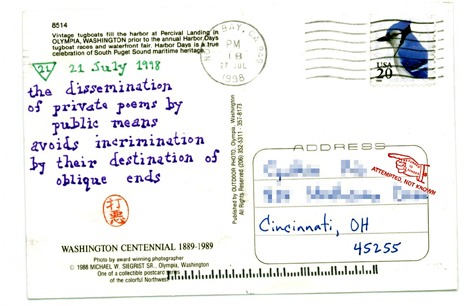 8514
Vintage tugboats fill the harbor at Percival Landing in
OLYMPIA, WASHINGTON prior to the annual Harbor Days
tugboat races and waterfront fair. Harbor Days is a true
celebration of South Puget Sound maritime heritage.
21 21 July 1998
the dissemination
of private poems by
public means
avoids incrimination
by their destination of
oblique ends
打惡
WASHINGTON CENTENNIAL 1889-1989
Photo by award winning photographer
© 1988 MICHAEL W. SIEGRIST SR., Olympia, Washington
One of a collectible postcard
of the colorful Northwest
Published by OUTDOOR PHOTO, Olympia, Washington
BAY, CA
PM
1998
USA
20
ADDRESS
ATTEMPTED, NOT KNOWN
Cincinnati, OH
45255